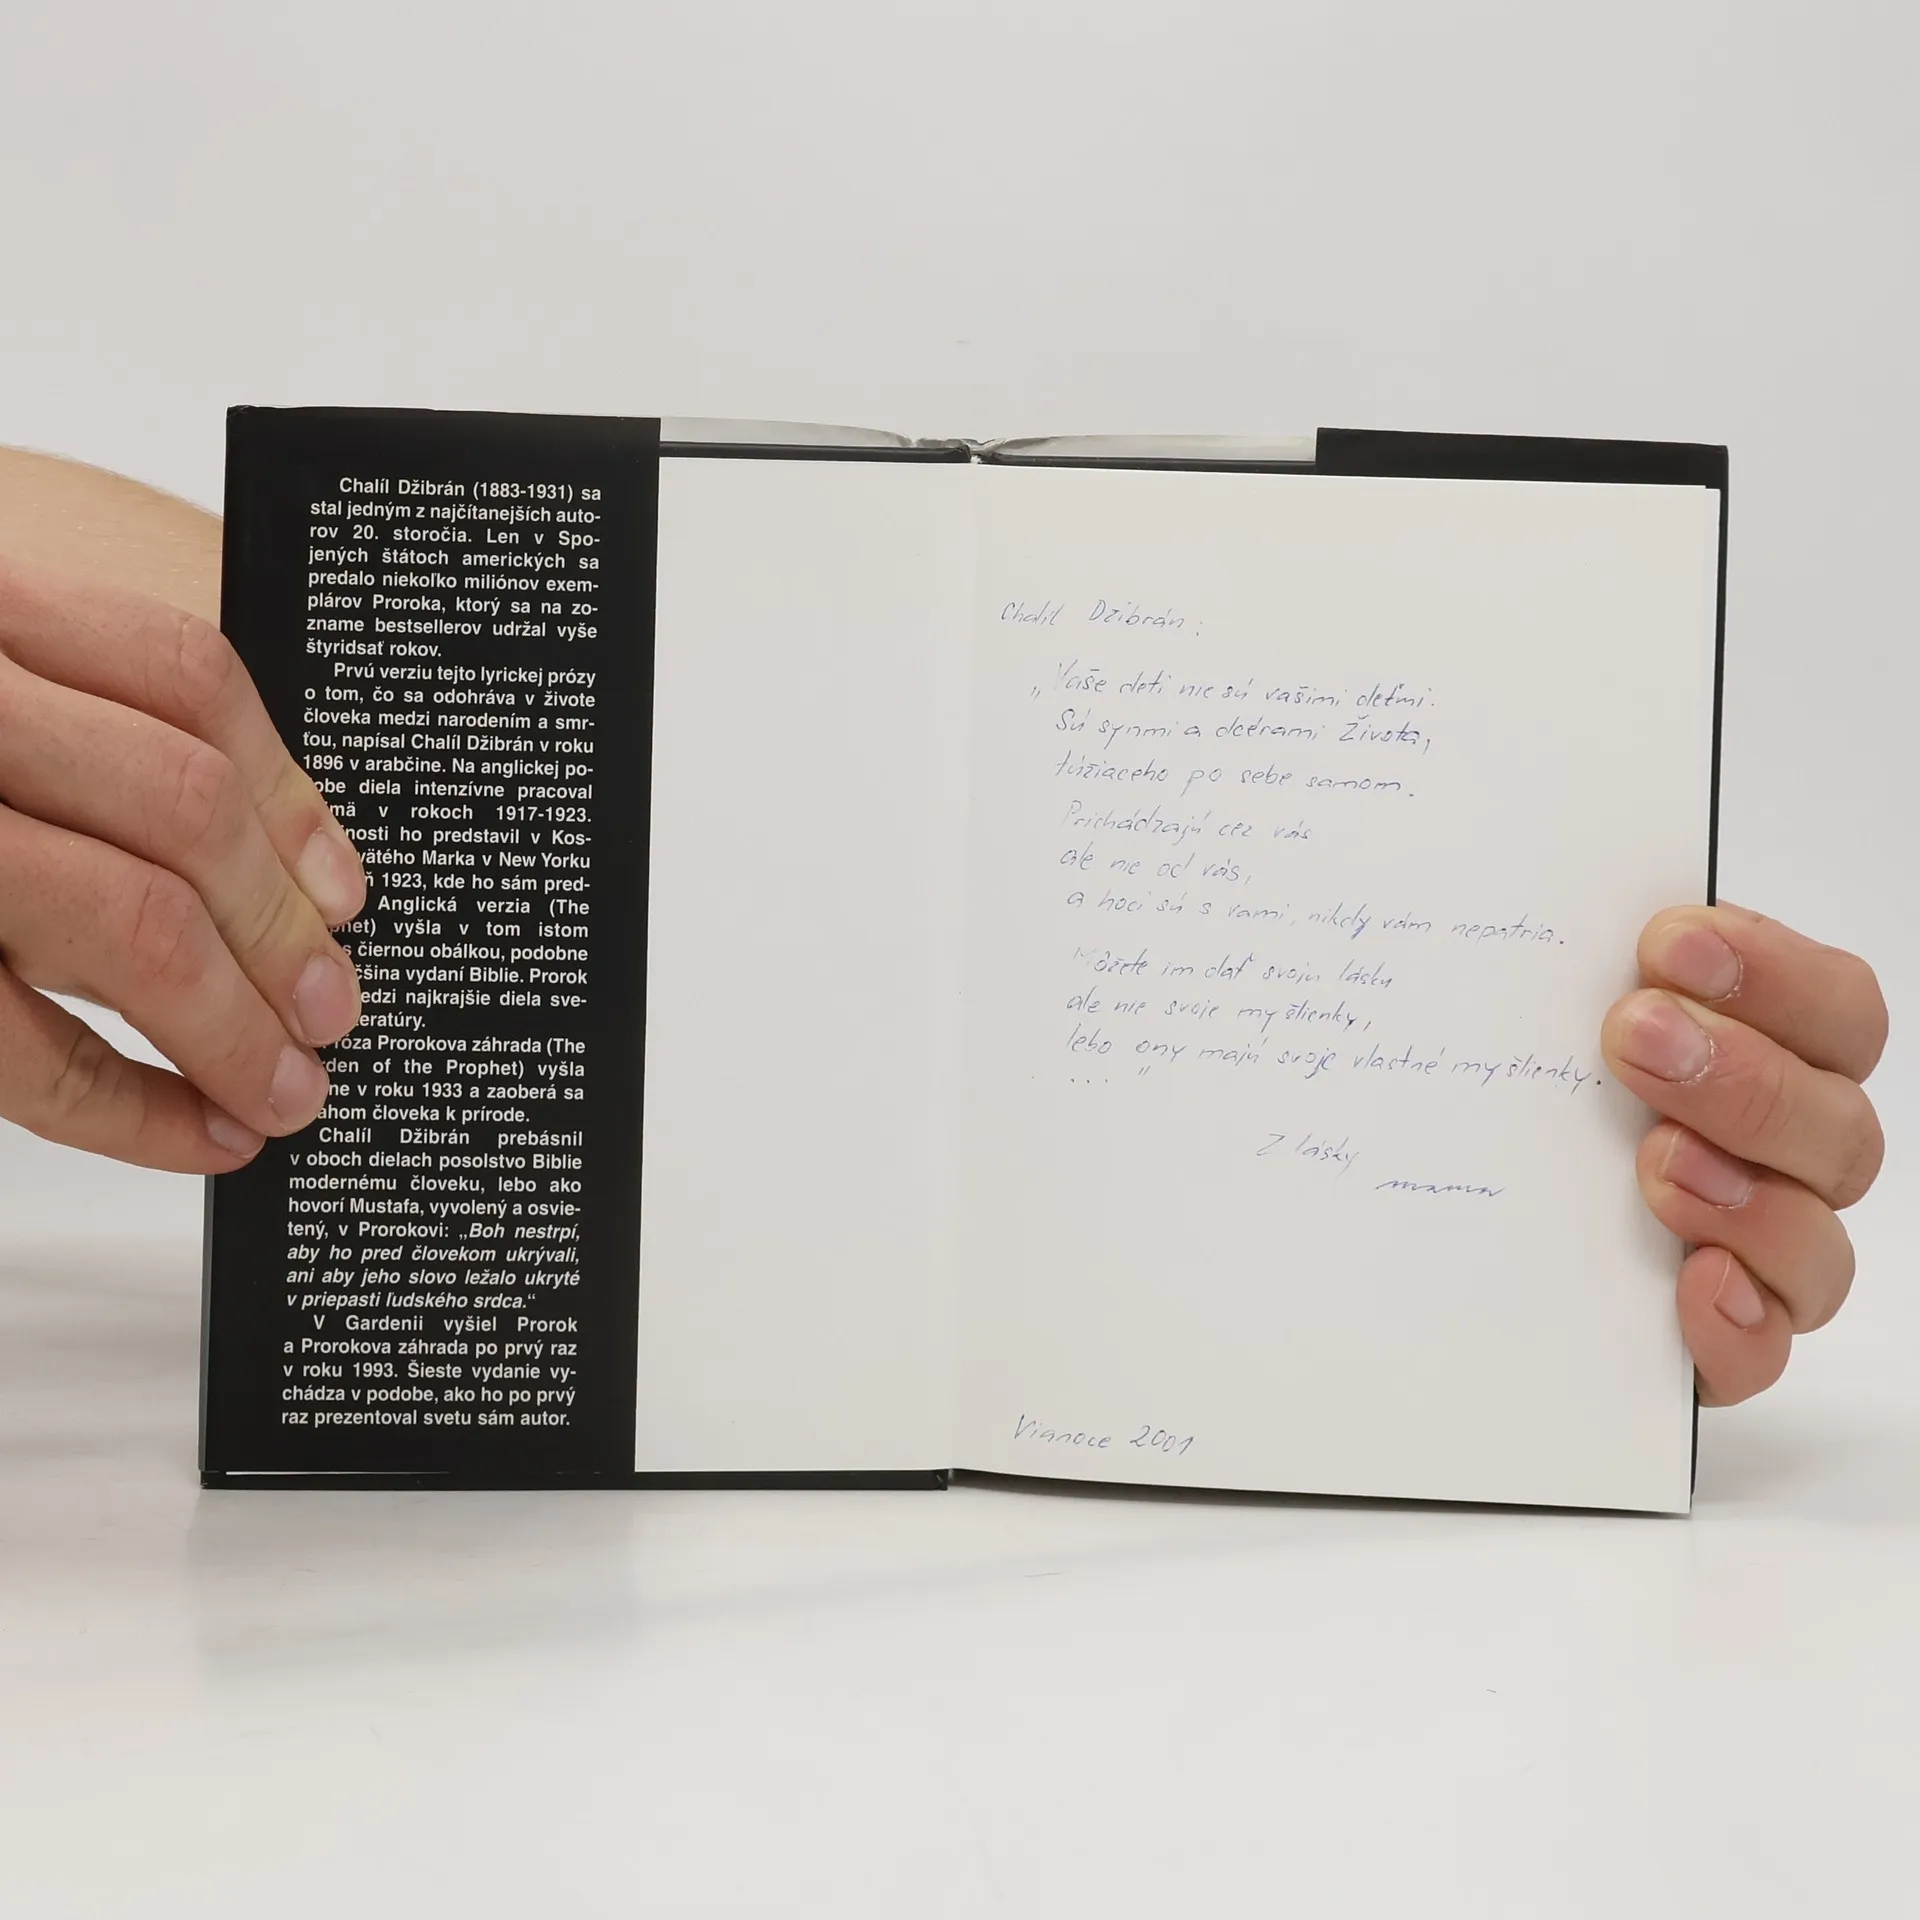 Chalíl Džibrán (1883-1931) sa
stal jedným z najčítanejších auto-
rov 20. storočia. Len v Spo-
jených štátoch amerických sa
predalo niekoľko miliónov exem-
plárov Proroka, ktorý sa na zo-
zname bestsellerov udržal vyše
štyridsať rokov.
Prvú verziu tejto lyrickej prózy
o tom, čo sa odohráva v živote
človeka medzi narodením a smr-
ťou, napísal Chalíl Džibrán v roku
1896 v arabčine. Na anglickej po-
obe diela intenzívne pracoval
mä v rokoch 1917-1923.
nosti ho predstavil v Kos-
vätého Marka v New Yorku
ň 1923, kde ho sám pred-
Anglická verzia (The
het) vyšla v tom istom
s čiernou obálkou, podobne
čšina vydaní Biblie. Prorok
edzi najkrajšie diela sve-
eratúry.
róza Prorokova záhrada (The
rden of the Prophet) vyšla
ne v roku 1933 a zaoberá sa
ahom človeka k prírode.
Chalíl Džibrán prebásnil
v oboch dielach posolstvo Biblie
modernému človeku, lebo ako
hovorí Mustafa, vyvolený a osvie-
tený, v Prorokovi: „Boh nestrpí,
aby ho pred človekom ukrývali,
ani aby jeho slovo ležalo ukryté
v priepasti ľudského srdca.“
V Gardenii vyšiel Prorok
a Prorokova záhrada po prvý raz
v roku 1993. Šieste vydanie vy-
chádza v podobe, ako ho po prvý
raz prezentoval svetu sám autor.
Chalíl Džibrán:
„Vaše deti nie sú vašimi deťmi.
Sú synmi a dcérami Života,
túžiaceho po sebe samom.
Prichádzajú cez vás
ale nie od vás,
a hoci sú s vami, nikdy vám nepatria.
Môžete im dať svoju lásku
ale nie svoje myšlienky,
lebo ony majú svoje vlastné myšlienky.
. ... "
Z lásky
mama
Vianoce 2001